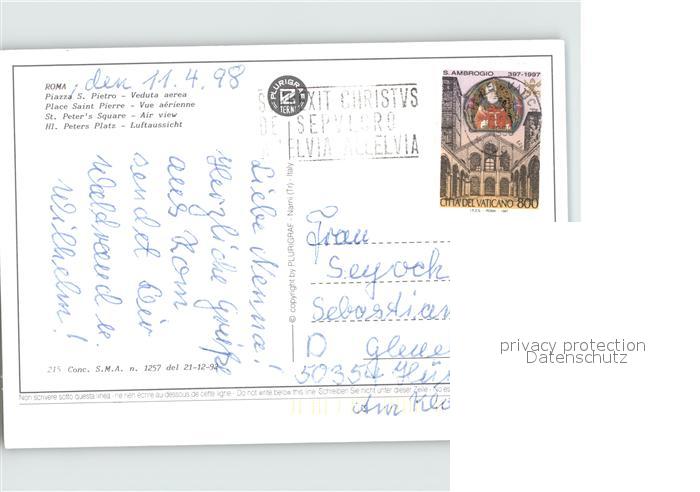 ROMA, den 11.4.98
Piazza S. Pietro - Veduta aerea
Place Saint Pierre - Vue aérienne
St. Peter's Square - Air view
Hl. Peters Platz - Luftaussicht
PLURIGRAF
TERNI
XIT CHRISTVS
DE SEPVLCRO
ELVIA ALLELVIA
S. AMBROGIO 397-1997
CITTÀ DEL VATICANO 800
Liebe Nenna!
Herzliche Grüße
aus Rom
sendet Dir
Waldraud &
Wilhelm!
© copyright by PLURIGRAF - Narni (Tr) - Italy
Frau
Seyock
Sebastian
D
50354
Am
215 Conc. S.M.A. n. 1257 del 21-12-92
Non scrivere sotto questa linea - ne rien écrire au-dessous de cette ligne - Do not write below this line - Schreiben Sie nicht unter dieser Zeile - No es
privacy protection
Datenschutz